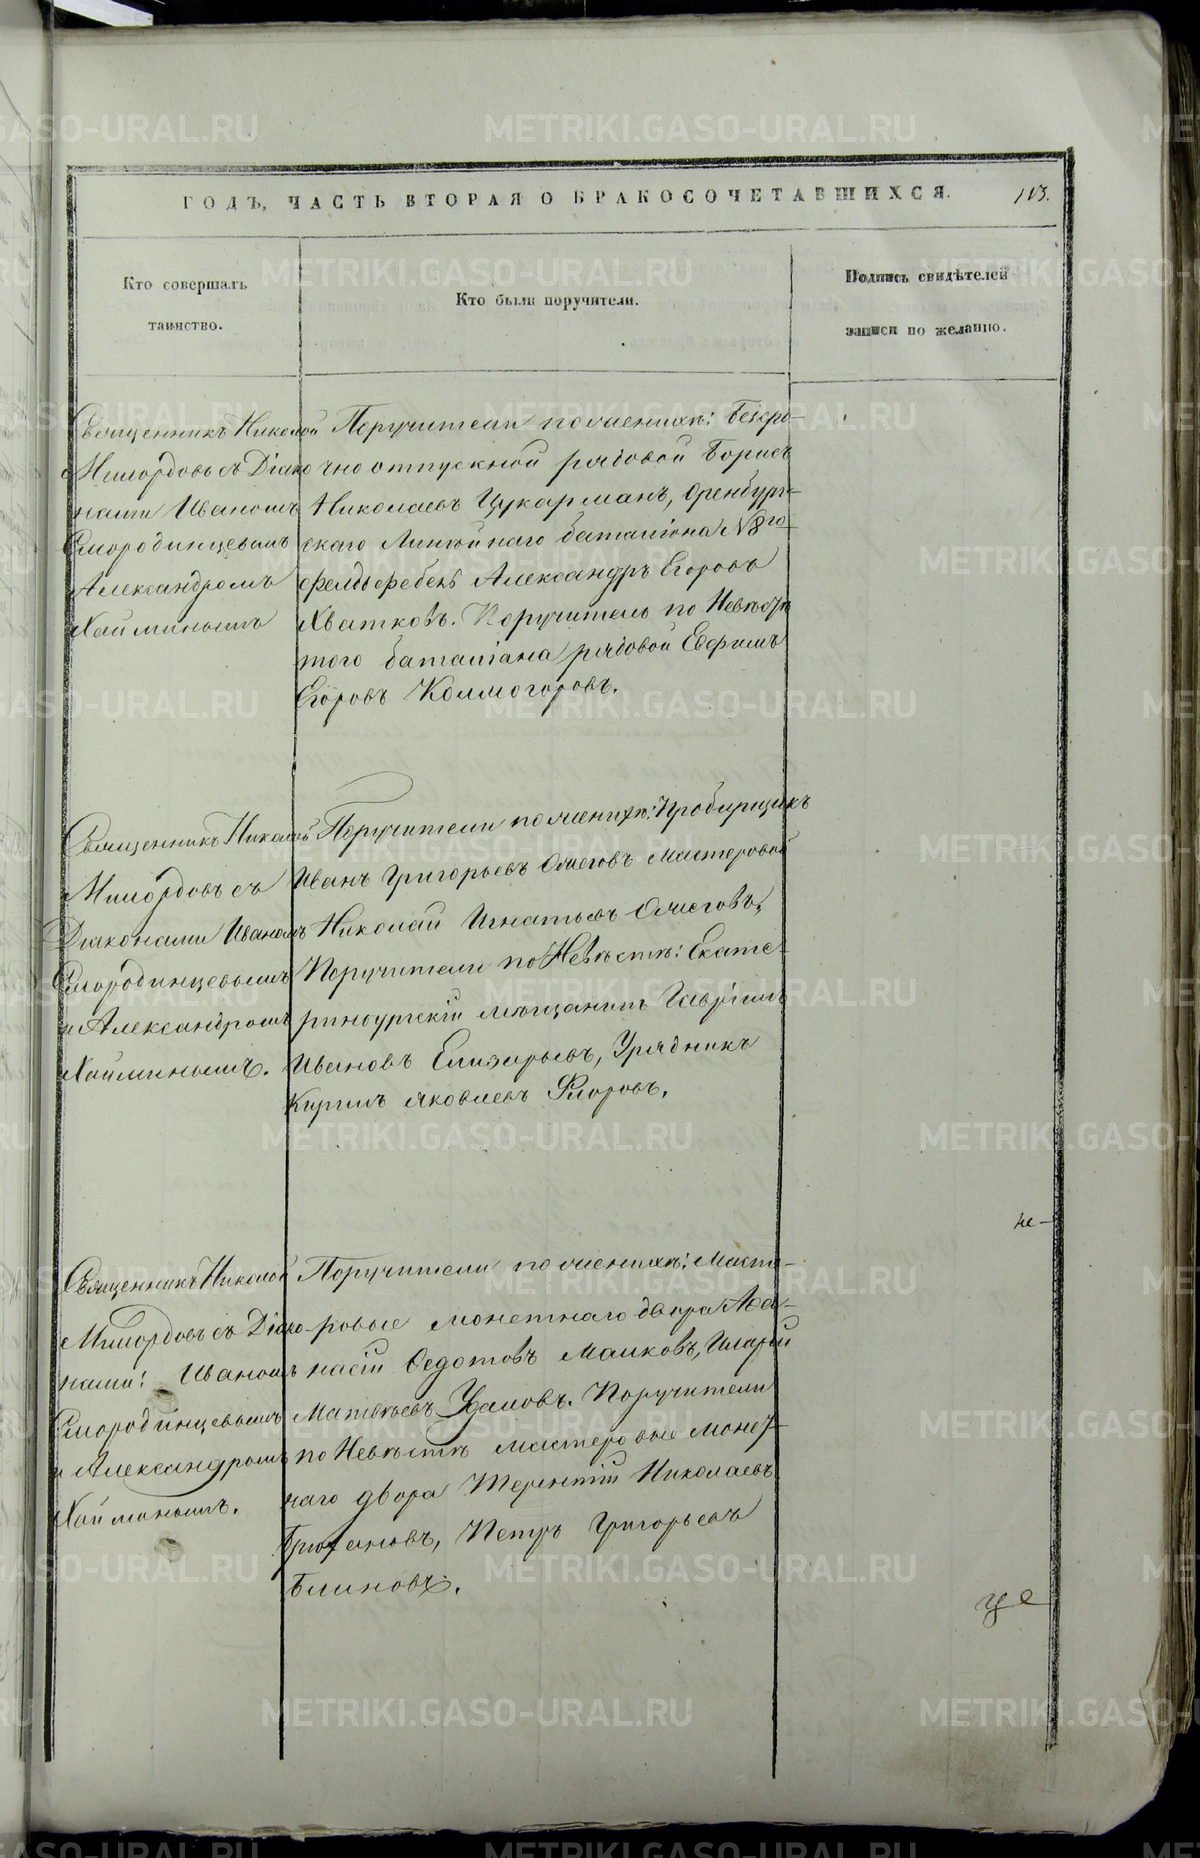 ГОДЪ, ЧАСТЬ ВТОРАЯ О БРАКОСОЧЕТАВШИХСЯ.
113.
Кто совершалъ
таинство.
Кто были поручители.
Подпись свидѣтелей
записи по желанію.
Священникъ Николай
Милордовъ съ Діако
нами Иваномъ
Смородинцевымъ
Александромъ
Хайминымъ
Поручители по женихѣ: Безсро-
чно отпускной рядовой Борисъ
Николаевъ Цукарманъ, Оренбург-
скаго Линѣйнаго баталіона №8го
фелдьфебель Александръ Егоровъ
Хватковъ. Поручитель по Невѣстѣ
того баталіана рядовой Евфимъ
Егоровъ Колмогоровъ.
Священникъ Николай
Милордовъ съ
Діаконами Иваномъ
Смородинцевымъ
и Александромъ
Хайминымъ.
Поручители по женихѣ: Пробирщикъ
Иванъ Григорьевъ Ожеговъ мастеровой
Николай Игнатьевъ Ожеговъ,
Поручители по Невѣстѣ: Екате-
ринбургскій мѣщанинъ Гавріилъ
Ивановъ Елизарьевъ, Урядникъ
Кирилъ Яковлевъ Флоровъ.
Священникъ Николай
Милордовъ съ Діако-
нами: Иваномъ
Смородинцевымъ
и Александромъ
Хайминымъ.
Поручители по женихѣ: Масте-
ровые монетнаго двора Афа-
насій Федотовъ Малковъ, Иларій
Матвѣевъ. Поручители
по Невѣстѣ мастеровые Монет-
наго двора Терентій Николаевъ
Петръ Григорьевъ
Блиновъ.
METRIKI.GASO-URAL.RU